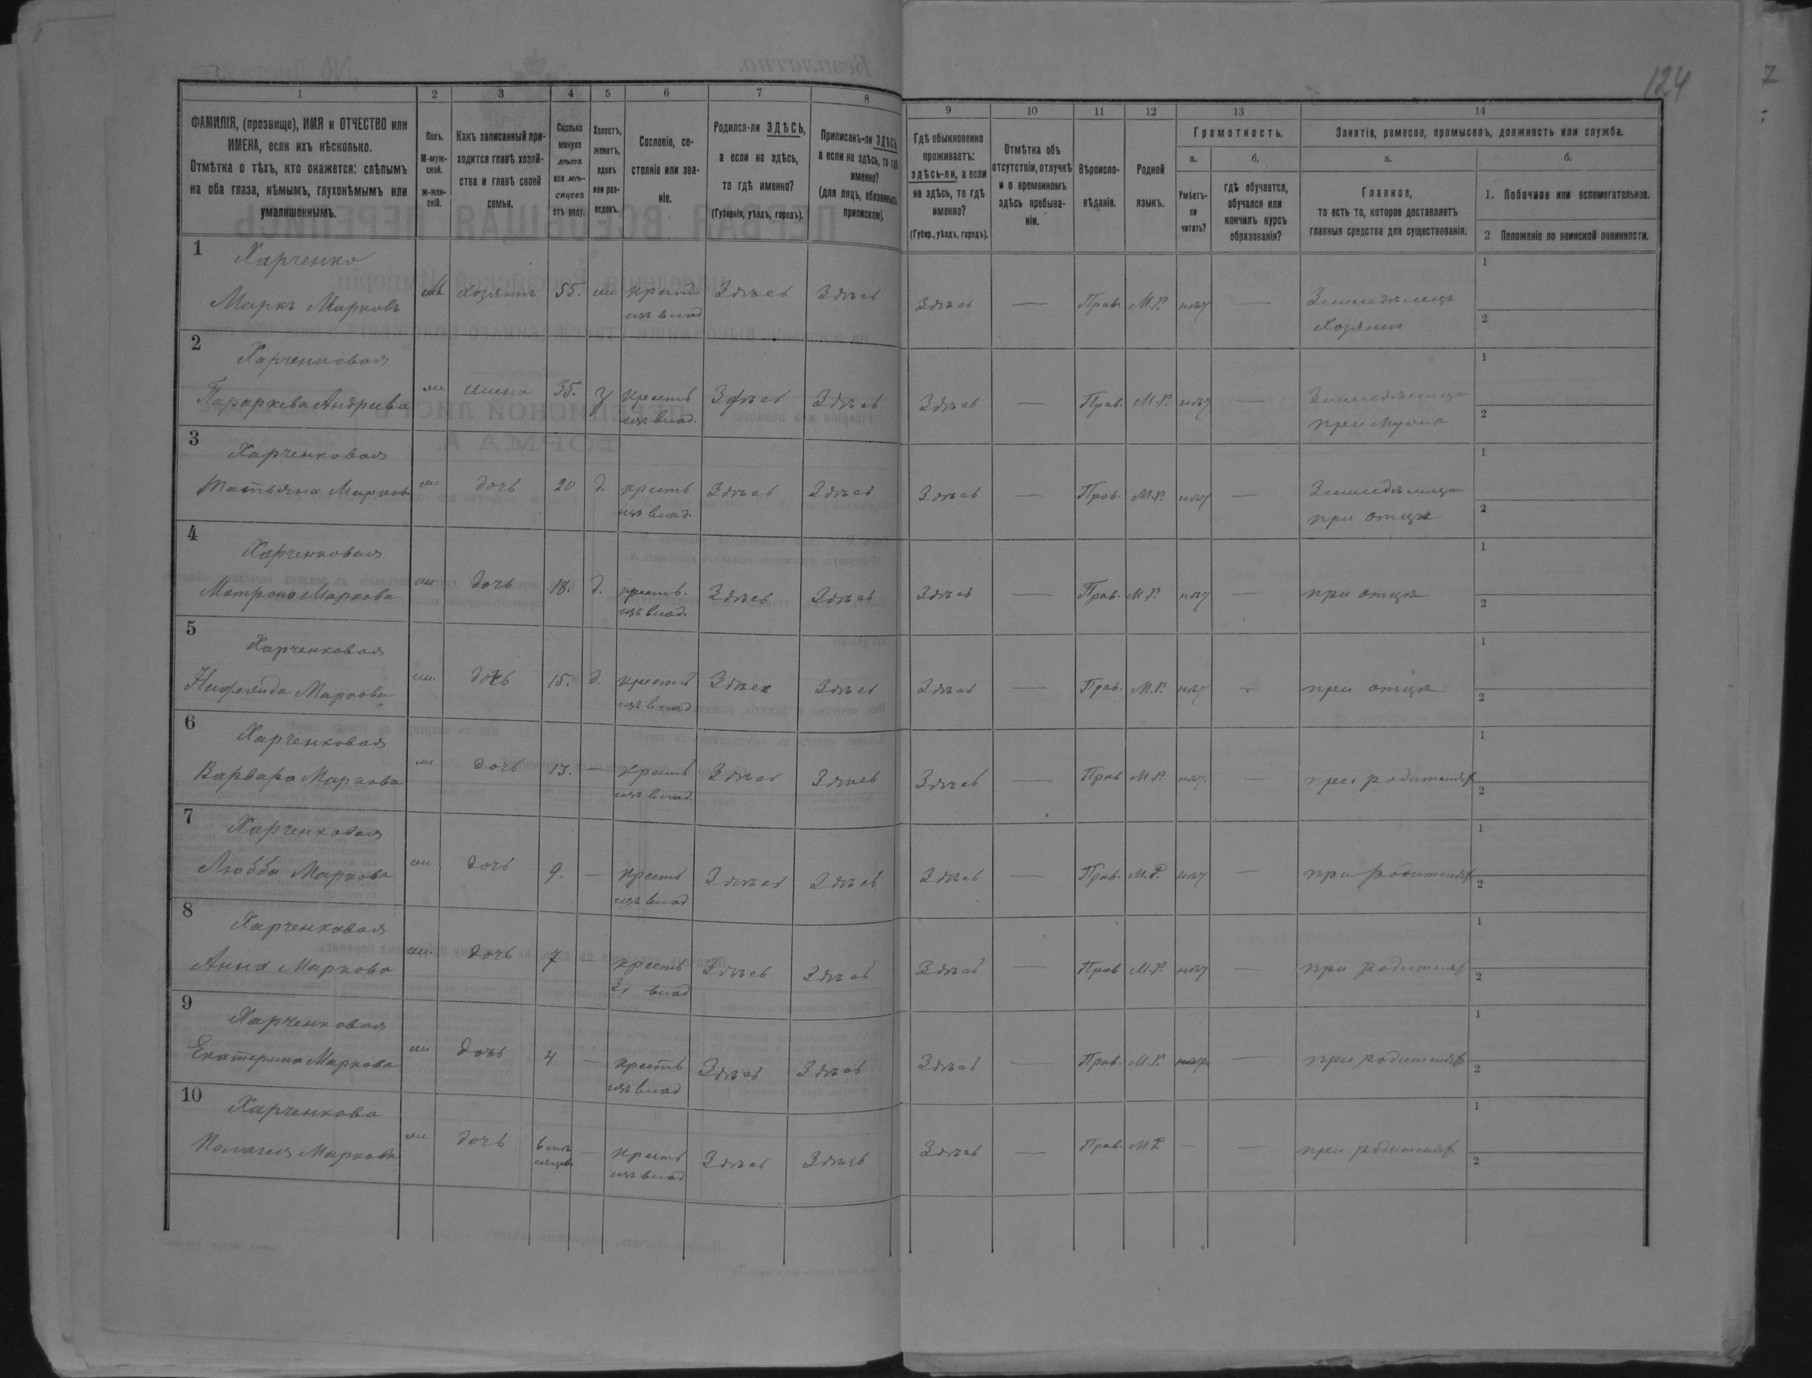 124
1 2 3 4 5 6 7 8 9 10 11 12 13 14
ФАМИЛІЯ, (прозвище), ИМЯ и ОТЧЕСТВО или ИМЕНА, если ихъ нѣсколько.
Отмѣтка о тѣхъ, кто окажется: слѣпымъ на оба глаза, нѣмымъ, глухонѣмымъ или умалишеннымъ.
Полъ. М-мужской. ж-женскій.
Какъ записанный приходится главѣ хозяйства и главѣ своей семьи.
Сколько минуло лѣтъ или мѣсяцевъ отъ роду.
Холостъ, женатъ, вдовъ или разведенъ.
Сословіе, состояніе или званіе.
Родился-ли ЗДѢСЬ, а если не здѣсь, то гдѣ именно? (Губернія, уѣздъ, городъ).
Приписанъ-ли ЗДѢСЬ, а если не здѣсь, то гдѣ именно? (для лицъ, обязанныхъ припискою).
Гдѣ обыкновенно проживаетъ: здѣсь-ли, а если не здѣсь, то гдѣ именно? (Губер., уѣздъ, городъ).
Отмѣтка объ отсутствіи, отлучкѣ и о временномъ здѣсь пребываніи.
Вѣроисповѣданіе.
Родной языкъ.
Грамотность.
а. Умѣетъ-ли читать?
б. гдѣ обучается, обучался или кончилъ курсъ образованія?
Занятія, ремесло, промыселъ, должность или служба.
а. Главное, то есть то, которое доставляетъ главныя средства для существованія.
б.
1. Побочное или вспомогательное.
2 Положеніе по воинской повинности.
1 Харченко
Маркъ Марковъ М хозяинъ 55. ж. крест Здѣсь Здѣсь Здѣсь — Прав. М.Р. нѣт — Земледѣлецъ 1
изъ влад хозяинъ 2
2 Харченковая
Параскева Андреева ж жена 35. з крестъ Здѣсь Здѣсь Здѣсь — Прав. М.Р. нѣт — Земледѣлица 1
изъ влад. при мужѣ 2
3 Харченковая
Татьяна Марков ж дочь 20 д. крестъ Здѣсь Здѣсь Здѣсь — Прав. М.Р. нѣт — Земледѣлица 1
изъ влад. при отцѣ 2
4 Харченковая
Матрона Маркова ж дочь 18. д. крестъ. Здѣсь Здѣсь Здѣсь — Прав. М.Р. нѣт — при отцѣ 1
изъ влад. 2
5 Харченковая
Маркова ж. дочь 15. д. крестъ Здѣсь Здѣсь Здѣсь — Прав. М.Р. нѣт - при отцѣ 1
изъ влад 2
6 Харченковая
Варвара Маркова ж дочь 13. — крест Здѣсь Здѣсь Здѣсь — Прав М.Р. нѣт. — при родителях 1
изъ влад. 2
7 Харченковая
Любба Маркова ж дочь 9. — крест Здѣсь Здѣсь Здѣсь — Прав. М.Р. нѣт — при родителях 1
изъ влад 2
8 Харченковая
Анна Маркова ж. дочь 7 — крестъ Здѣсь Здѣсь Здѣсь — Прав М.Р. нѣт — при родителях 1
влад 2
9 Харченковая
Екатерина Маркова ж дочь 4 — крестъ Здѣсь Здѣсь Здѣсь — Прав. М.Р. — при родителях 1
изъ влад 2
10 Харченкова
Пелагея Маркова ж дочь — крест Здѣсь Здѣсь Здѣсь — Прав. М.Р. — — при родителях 1
изъ влад 2